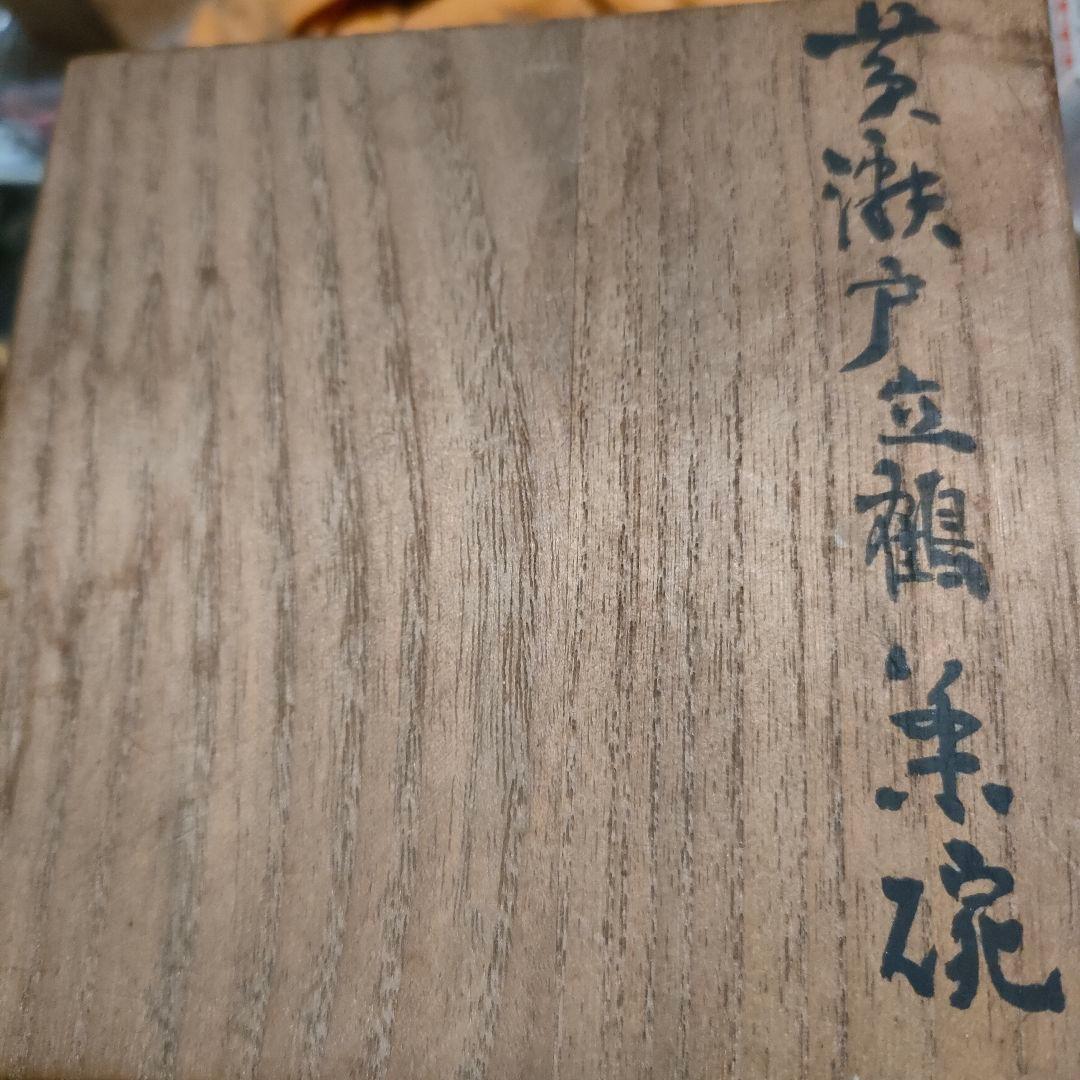 黄瀬戸立鶴茶碗